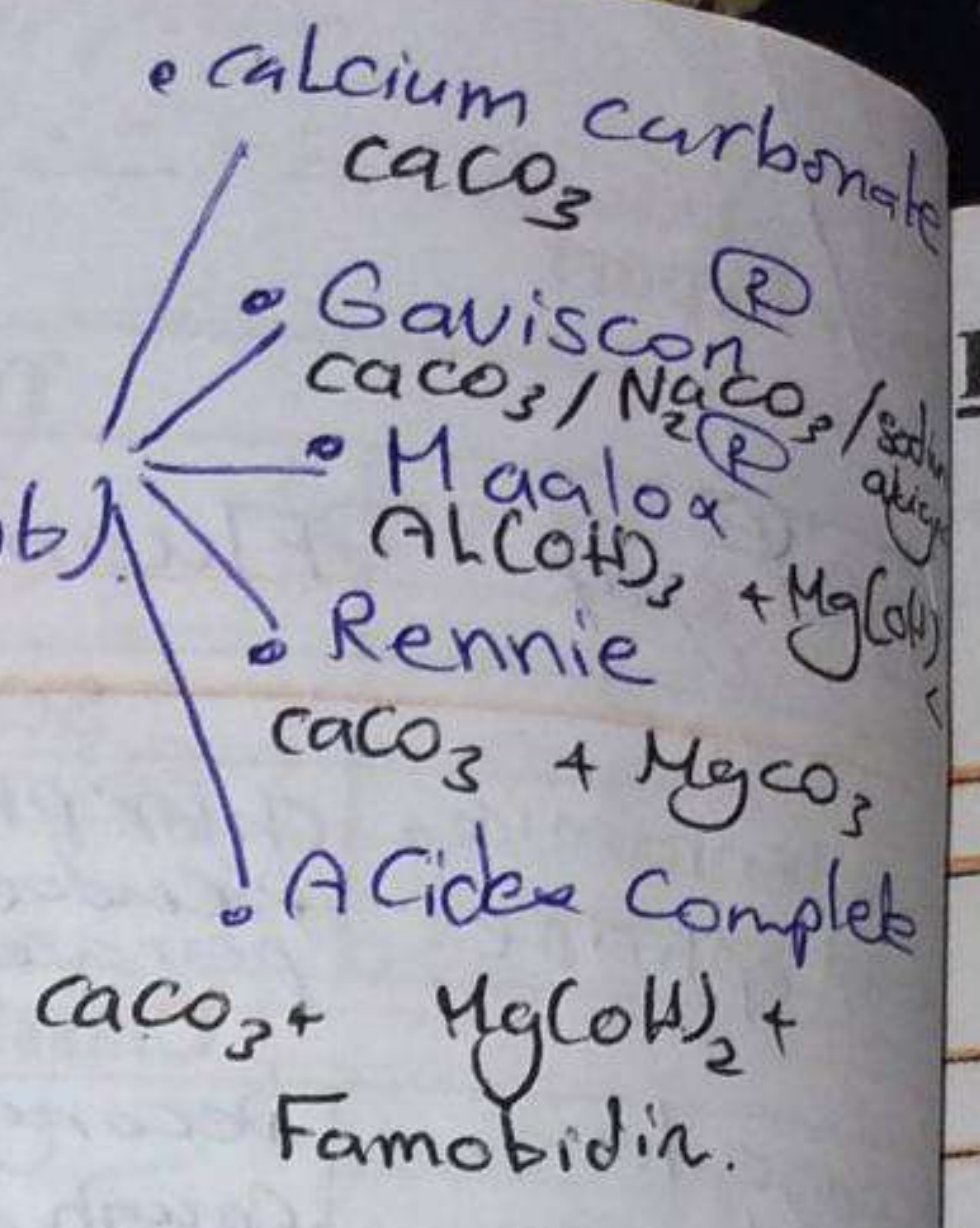 • Calcium Carbonate
CaCO₃
• Gaviscon ®
CaCO₃ / Na₂CO₃ /
• Maalox ®
Al(OH)₃ + Mg(OH)
• Rennie
CaCO₃ + MgCO₃
• Acidex Complete
CaCO₃ + Mg(OH)₂ +
Famobidin.